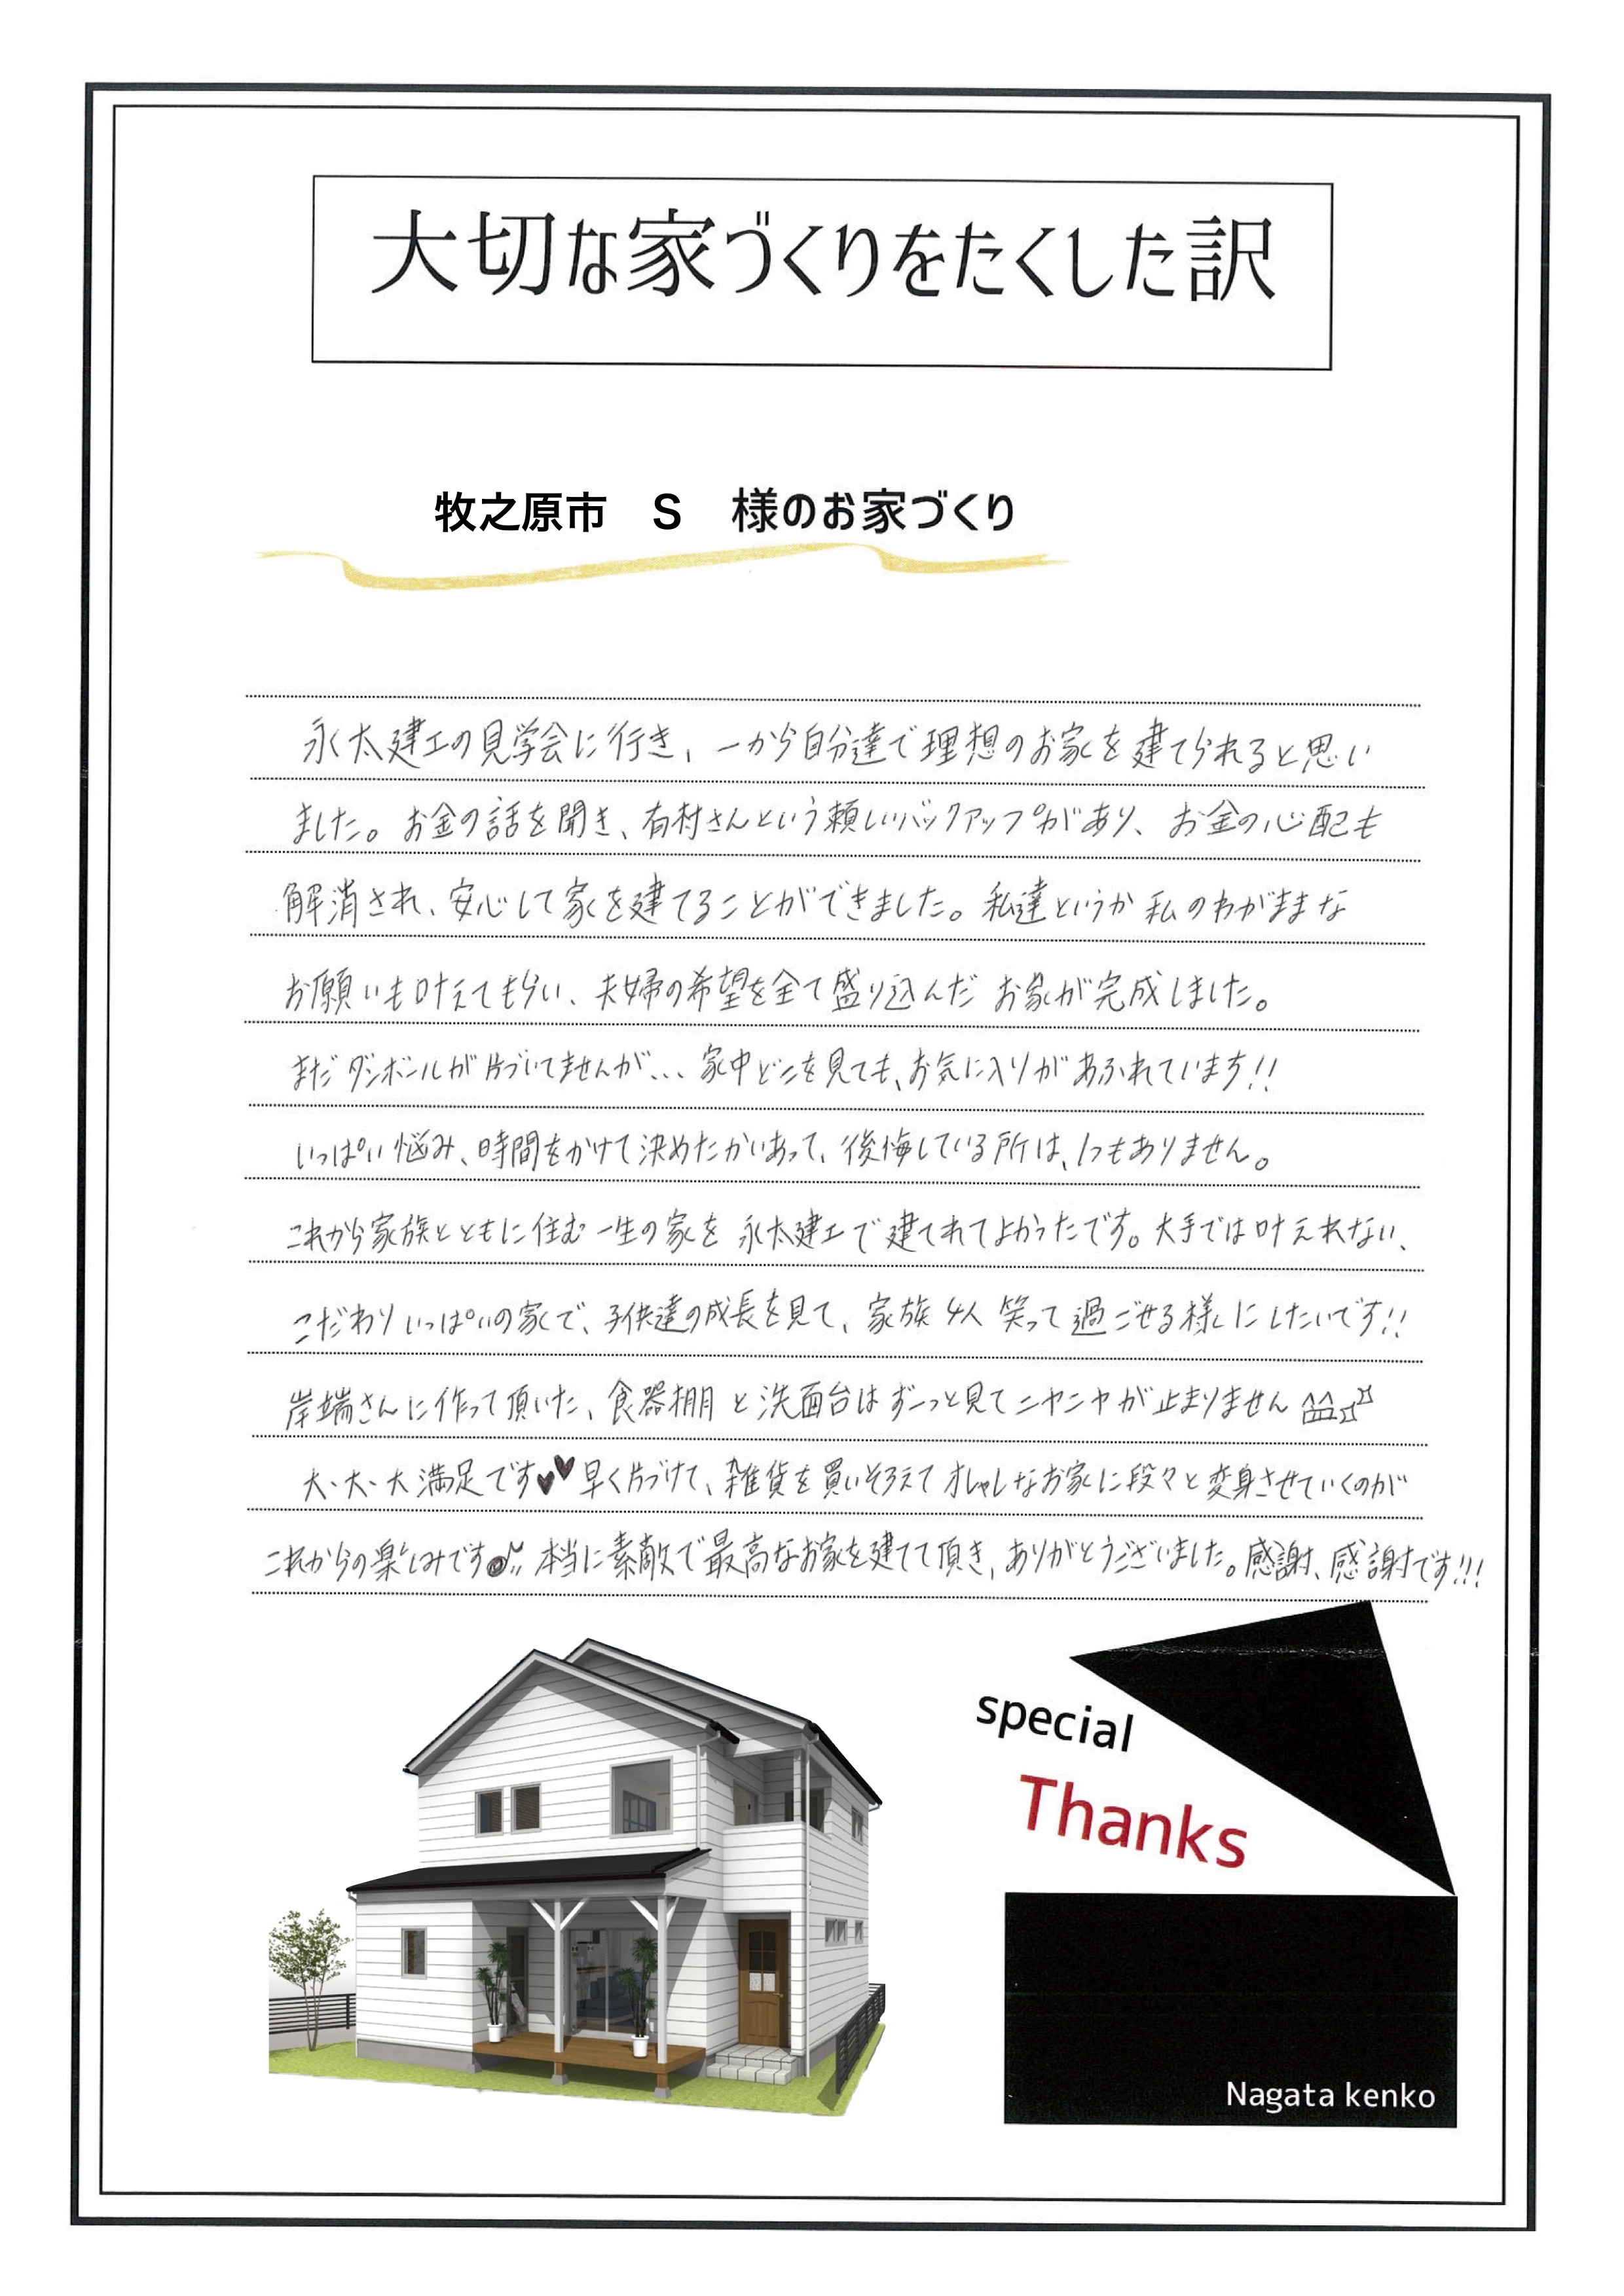 大切な家づくりをたくした訳
牧之原市 S 様のお家づくり
永太建工の見学会に行き、一から自分達で理想のお家を建てられると思い
ました。お金の話を聞き、有村さんという頼しいバックアップがあり、お金の心配も
解消され、安心して家を建てることができました。私達というか私のわがままな
お願いも叶えてもらい、夫婦の希望を全て盛り込んだお家が完成しました。
まだダンボールが片づいてませんが、、、家中どこを見ても、お気に入りがあふれています!!
いっぱい悩み、時間をかけて決めたかいあって、後悔している所は、1つもありません。
これから家族とともに住む一生の家を永太建工で建てれてよかったです。大手では叶えれない、
こだわりいっぱいの家で、子供達の成長を見て、家族4人笑って過ごせる様にしたいです!!
岸端さんに作って頂いた、食器棚と洗面台はずーっと見てニヤニヤが止まりません
大、大、大満足です♥♥早く片づけて、雑貨を買いそろえてオシャレなお家に段々と変身させていくのが
これからの楽しみです♪!!本当に素敵で最高なお家を建てて頂き、ありがとうございました。感謝、感謝です!!!
special
Thanks
Nagata kenko